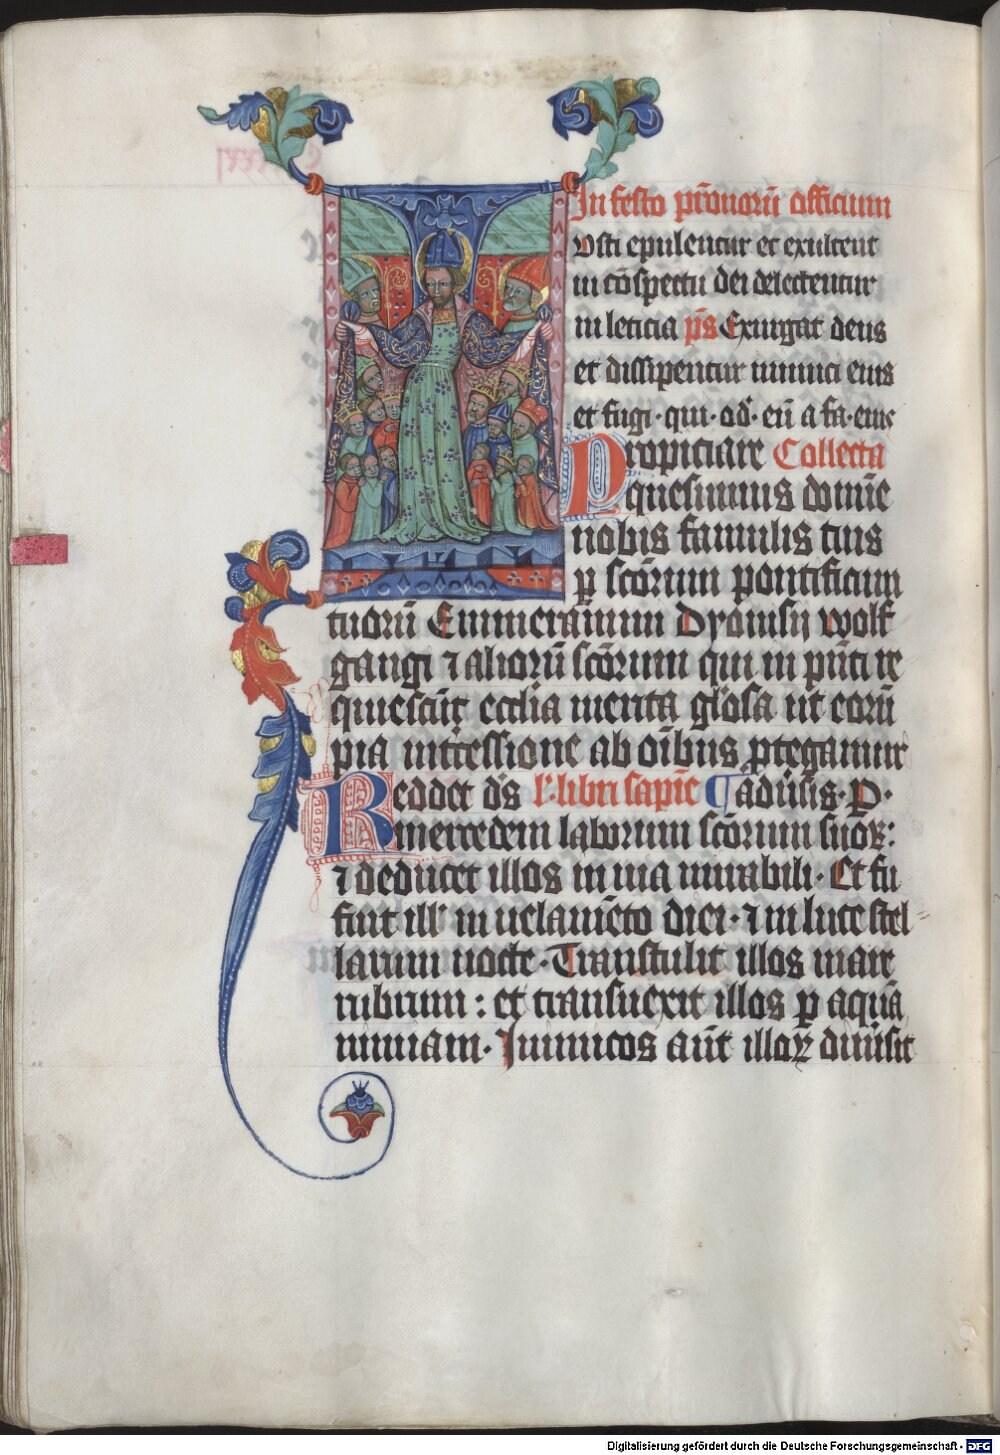 In festo pr̄onorū officium
vsti epulentur et exultent
in cōspectu dei delectentur
in leticia p̄s Exurgat deus
et dissipentur inimici eius
et fugi· qui· od̄· eū a fa· eius
Propiciare Collecta
quesumus domīe
nobis famulis tuis
ꝑ scōrum pontificum
tuorū Emmeramum Dyonisij wolf
gangi ⁊ aliorū scōrum qui in pn̄ti re
quiescūt ecclīa merita glōsa ut eorū
pia intercessione ab oībus ꝓtegamur
Reddet ds̄ l'· libri sapīe ¶ aduūs· P·
mercedem laborum scōrum suoꝝ:
⁊ deducet illos in uia mirabili· Et fu
fuit ill' in uelamēto diei· ⁊ in luce stel
larum nocte· Transtulit illos mare
rubrum: et transuexit illos ꝑ aquā
nimiam· Inimicos aūt illoꝝ dimersit
Digitalisierung gefördert durch die Deutsche Forschungsgemeinschaft - DFG